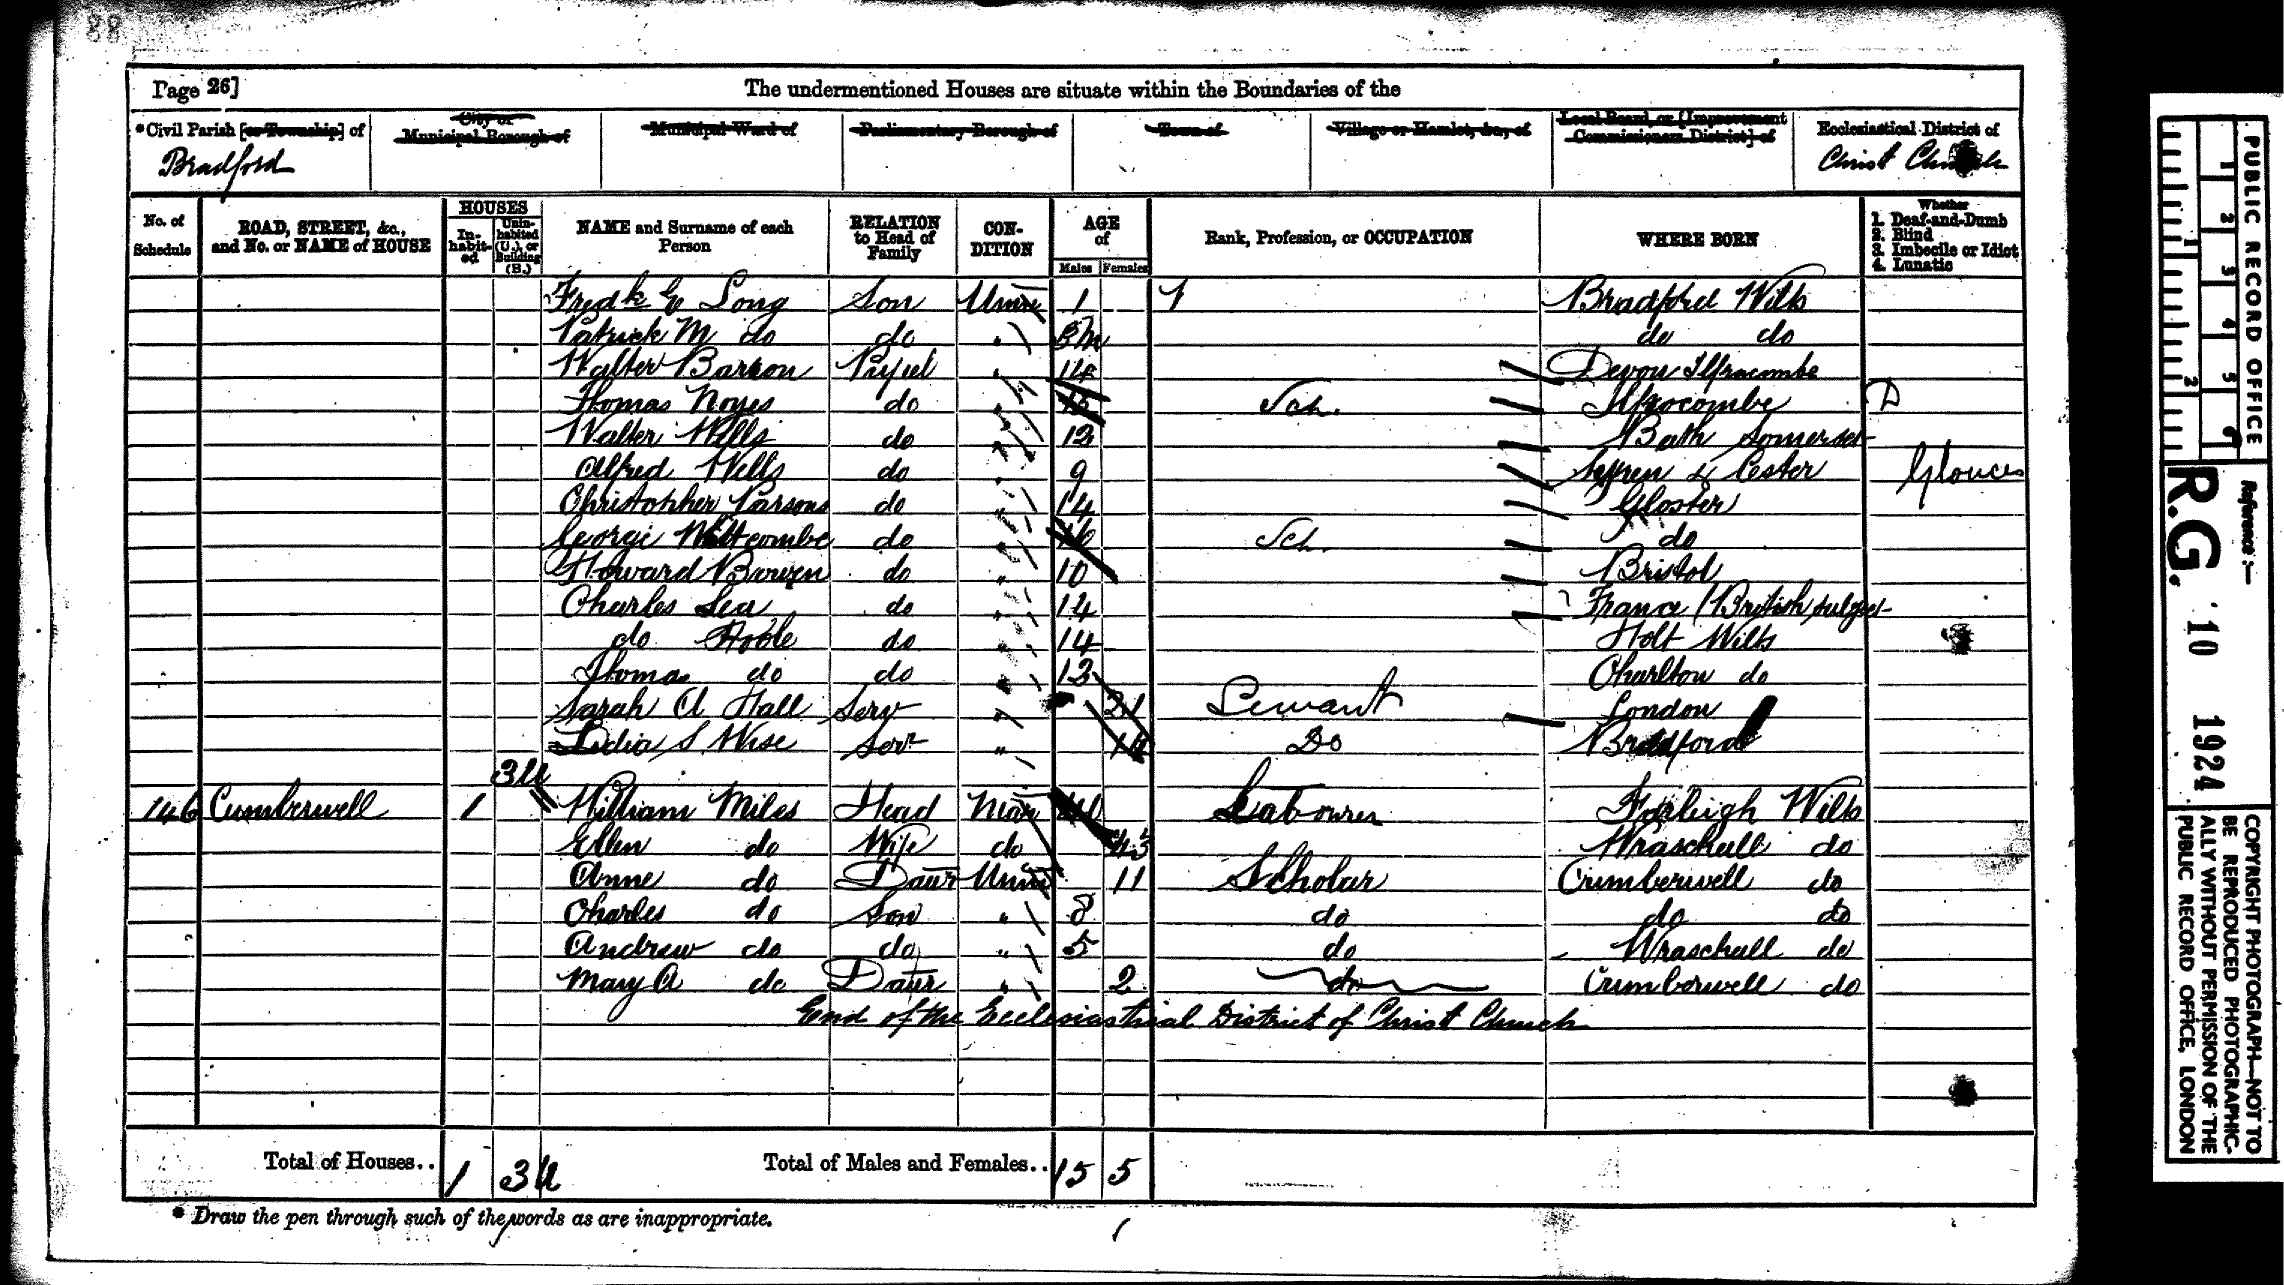 88
Page 26] The undermentioned Houses are situate within the Boundaries of the
*Civil Parish [or Township] of City or Municipal Borough of Municipal Ward of Parliamentary Borough of Town of Village or Hamlet, &c., of Local Board, or [Improvement Commissioners District] of Ecclesiastical District of
Bradford Christ Church
No. of Schedule ROAD, STREET, &c., and No. or NAME of HOUSE HOUSES Inhabited Uninhabited (U.), or Building (B.) NAME and Surname of each Person RELATION to Head of Family CONDITION AGE of Males Females Rank, Profession, or OCCUPATION WHERE BORN Whether 1. Deaf-and-Dumb 2. Blind 3. Imbecile or Idiot 4. Lunatic
Fredk E Long Son Unm 1 Bradford Wilts
Patrick M do do " 5m do do
Walter Barron Pupil " 14 Devon Ilfracombe
Thomas Noyes do " Sch. Ilfrocombe D
Walter Wills do " 12 Bath Somerset
Alfred Wells do " 9 & Cester Glouces
Christopher Parsons do " 14 Gloster
George do " 16 Sch. do
Howard Bowen do " 10 Bristol
Charles Lea do " 14 France (British subject
do do " 14 Holt Wilts
Thomas do do " 13 Charlton do
Sarah A Hall Serv " 21 Servant London
Lidia S Wise Serv " Do Bradford
3U
146 Cumberwell 1 William Miles Head Mar Labourer Farleigh Wilts
Ellen do Wife do 43 Wraschall do
Anne do Daur Unm 11 Scholar Cumberwell do
Charles do Son " 8 do do do
Andrew do do " 5 do Wraschall do
Mary A do Daur " 2 do Cumberwell do
End of the Ecclesiastical District of Christ Church
Total of Houses.. 1 3U Total of Males and Females.. 15 5
* Draw the pen through such of the words as are inappropriate.
PUBLIC RECORD OFFICE
1 2 3 4 5 6
1 2
Reference :-
R.G. 10 1924
COPYRIGHT PHOTOGRAPH—NOT TO BE REPRODUCED PHOTOGRAPHICALLY WITHOUT PERMISSION OF THE PUBLIC RECORD OFFICE, LONDON